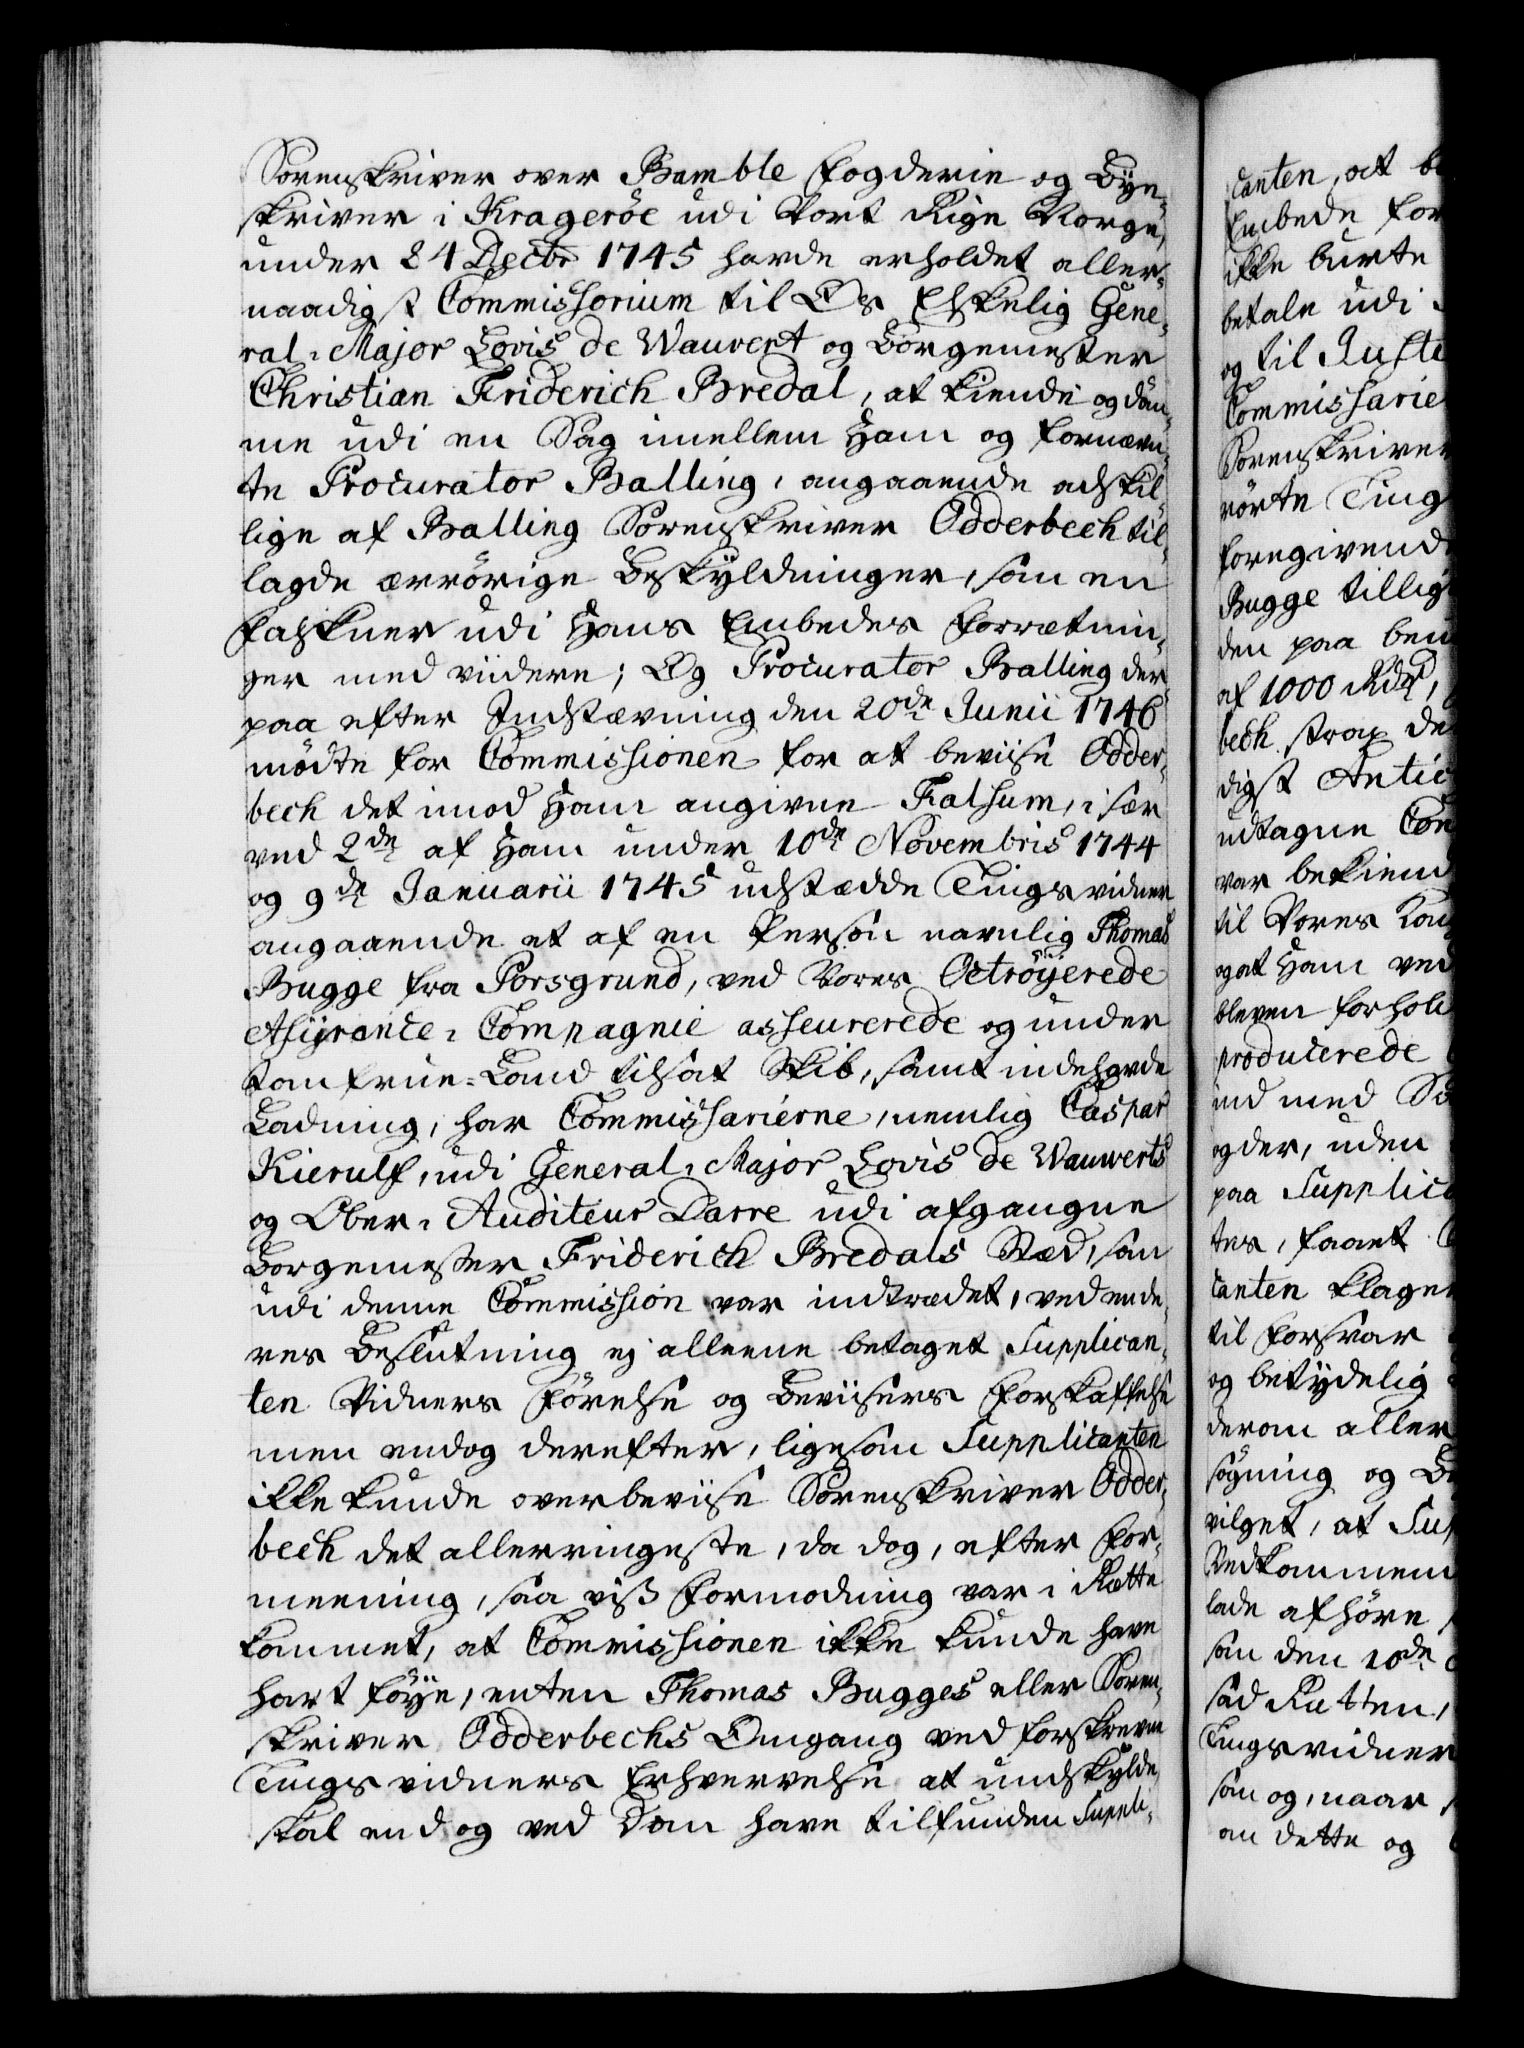 Sorenskriver over Bamble Fogderie og Bye-
skriver i Krageröe udi Vort Rige Norge,
under 24 Decbr 1745 havde erholdet aller-
naadigst Commissorium til Os Elskelig Gene-
ral-Major Lovis de Wauvert og Borgemester
Christian Friderich Bredal, at kiende og döm-
me udi en Sag imellem Ham og fornævn-
te Procurator Balling, angaaende adskil-
lige af Balling Sorenskriver Odderbech til-
lagde ærrörige Beskyldninger, som en
Falskner udi Hans Embedes Forrætnin-
ger med viidere; Og Procurator Balling der-
paa efter Indstævning den 20de Junii 1746
mödte for Commissionen for at beviise Odder-
bech det imod Ham angivne Falsum, i sær
ved 2de af Ham under 10de Novembris 1744
og 9de Januarii 1745 udstædde Tings vidner
angaaende et af en Person navnlig Thomas
Bugge fra Porsgrund, ved Vores Octröyerede
Assyrance-Compagnie asseurerede og under
Jomfrue-Land tilsat Skib, samt indehavde
Ladning, har Commissarierne, nemlig Caspar
Kierulf, udi General-Major Lovis de Wauwerts
og Ober-Auditeur Darre udi afgangne
Borgemester Friderich Bredals Stæd, som
udi denne Commission var indtrædet, ved en de-
res Beslutning ej alleene betaget Supplican-
ten Vidners Förelse og Beviisers Forskaffelse
men endog derefter, ligesom Supplicanten
ikke kunde overbeviise Sorenskriver Odder-
bech det allerringeste, da dog, efter For-
meening, saa viss Formodning var i Rette
kommet, at Commissionen ikke kunde have
havt föye, enten Thomas Bugges eller Soren-
skriver Odderbechs Omgang ved forskrevne
Tings vidners Erhvervelse at undskylde,
skal end og ved Dom have tilfunden Suppli-
canten, at
Embede for
ikke burte
betale udi
og til Juste
Commissarie
Sorenskriver
rörte Ting
foregivend
Bugge tillig
den paa
af 1000 Rdr,
bech strax de
digst Antic
udtagne Con
var bekiend
til Vores
og at Ham ved
bleven forhol
producerede
ind med
og der, uden
paa Supplica
tes, faaet
canten klager
til Forsvar
og betydelig
derom aller
sögning og
vilget, at Sup
Vedkommen
lade afhöre
som den 10de
sad Retten,
Tings vidner
som og, naar
om dette og